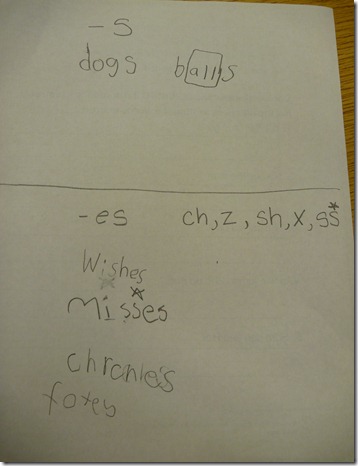 -s
dogs balls
-es ch, z, sh, x, ss
Wishes
Misses
foxes